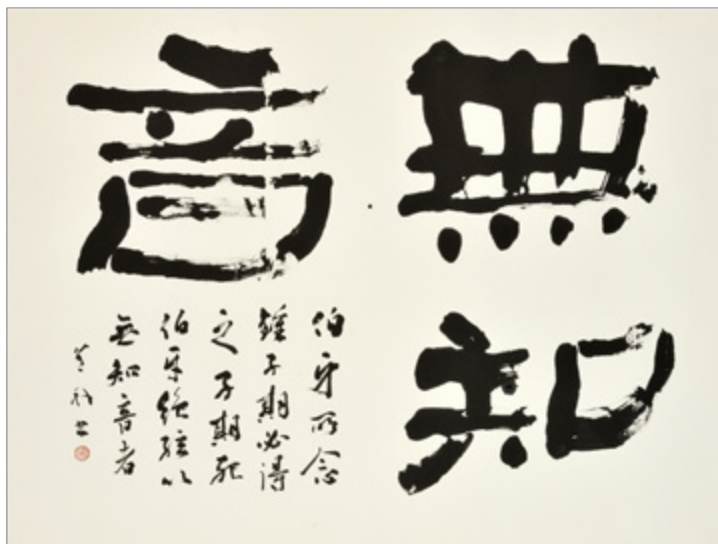 無知
音
伯牙所念
鍾子期必得
之子期死
伯牙絶弦以
無知音者